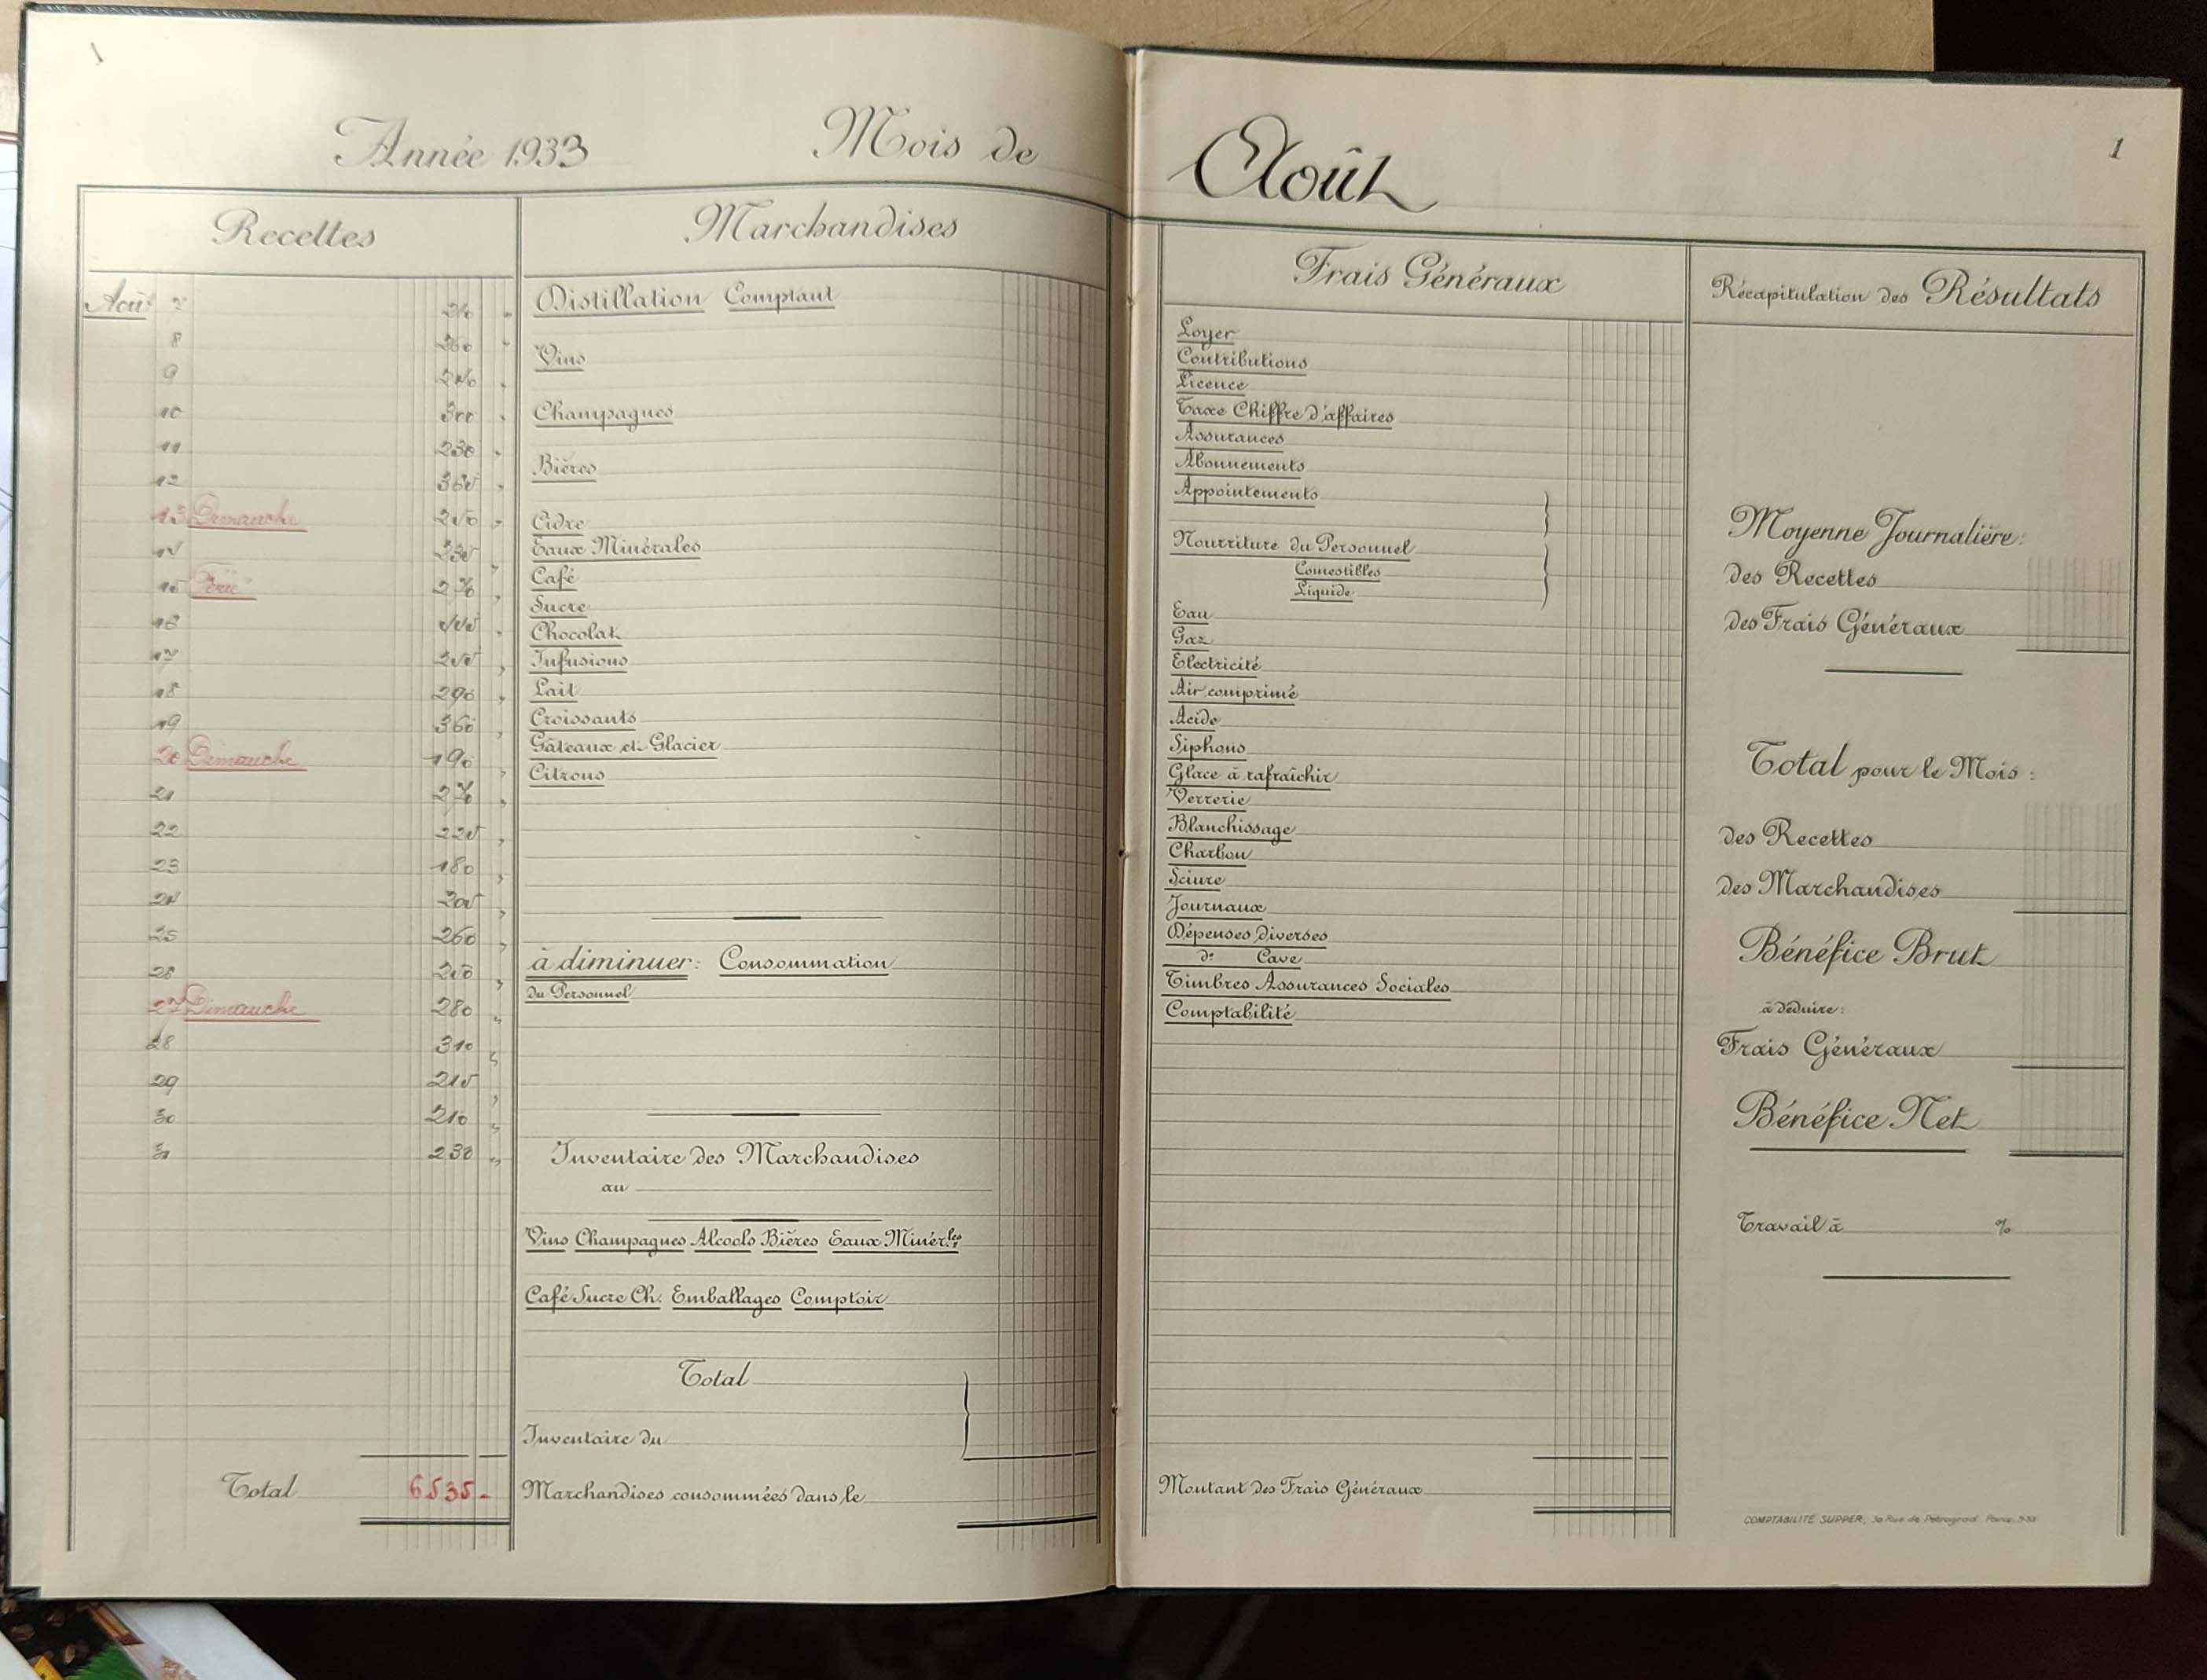 1
Année 1933
Mois de
Août
1
Recettes
Août 7
8 260
9
10 300
11 230
12 360
13 Dimanche
14
15 Férié
16
17
18 290
19 360
20 Dimanche 190
21
22 225
23 180
24 205
25 260
26
27 Dimanche 280
28 310
29 215
30 210
31 230
Total 6535-
Marchandises
Distillation Comptant
Vins
Champagnes
Bières
Cidre
Eaux Minérales
Café
Sucre
Chocolat
Infusions
Lait
Croissants
Gâteaux et Glacier
Citrons
à diminuer: Consommation
du Personnel
Inventaire des Marchandises
au
Vins Champagnes Alcools Bières Eaux Minér.les
Café Sucre Ch. Emballages Comptoir
Total
Inventaire du
Marchandises consommées dans le
Frais Généraux
Loyer
Contributions
Licence
Taxe Chiffre d'affaires
Assurances
Abonnements
Appointements
Nourriture du Personnel
Comestibles
Liquide
Eau
Gaz
Electricité
Air comprimé
Acide
Siphons
Glace à rafraîchir
Verrerie
Blanchissage
Charbon
Sciure
Journaux
Dépenses diverses
d° Cave
Timbres Assurances Sociales
Comptabilité
Montant des Frais Généraux
Récapitulation des Résultats
Moyenne Journalière:
des Recettes
des Frais Généraux
Total pour le Mois:
des Recettes
des Marchandises
Bénéfice Brut
à déduire:
Frais Généraux
Bénéfice Net
Travail à %
COMPTABILITÉ SUPPER, 30 Rue de Pétrograd Paris